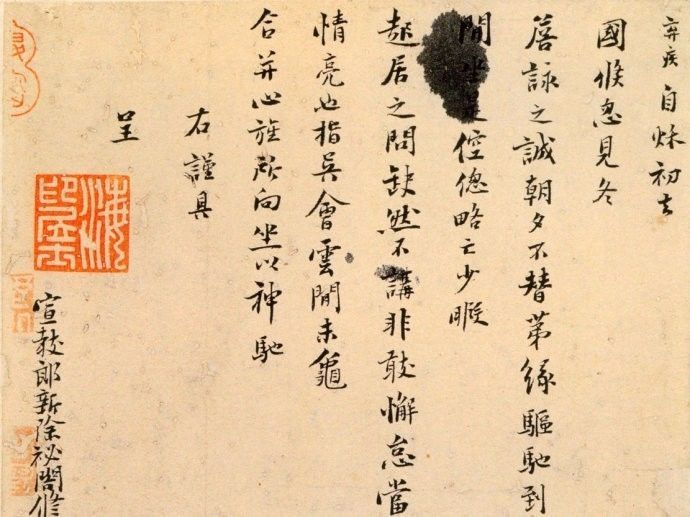 弃疾自秌初去
國倏忽見冬
詹詠之誠朝夕不替苐緣驅馳到
間坐是倥傯略亡少暇
起居之問缺然不講非敢懈怠當
情亮也指吳會雲間未龜
合并心旌所向坐以神馳
右謹具
呈
宣教郎新除祕閣修